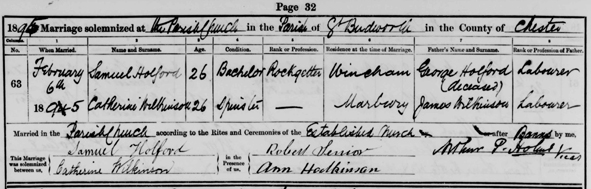 Page 32
1895 Marriage solemnized at the Parish Church in the Parish of Gt Budworth in the County of Chester
Columns:— 1 2 3 4 5 6 7 8
No. When Married. Name and Surname. Age. Condition. Rank or Profession. Residence at the time of Marriage. Father's Name and Surname. Rank or Profession of Father.
63 February 6th 1895 Samuel Holford 26 Bachelor Rockgetter Wincham George Holford (deceased) Labourer
Catherine Wilkinson 26 Spinster — Marbury James Wilkinson Labourer
Married in the Parish Church according to the Rites and Ceremonies of the Established Church after Banns by me,
This Marriage was solemnized between us, Samuel Holford in the Presence of us, Robert Senior Arthur P. Vicar
Catherine Wilkinson Ann